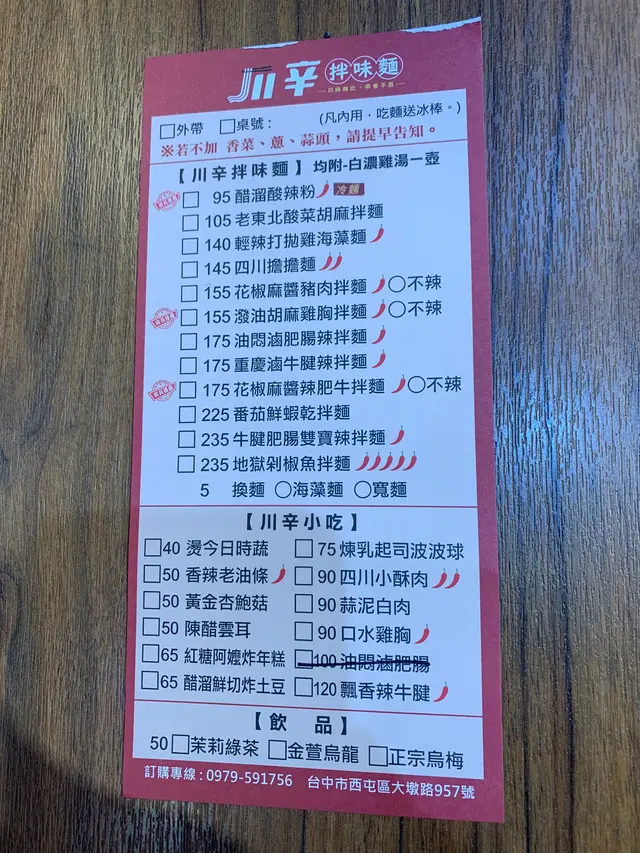 川辛 拌味麵
□外帶 □桌號: (凡內用,吃麵送冰棒。)
※若不加 香菜、蔥、蒜頭,請提早告知。
【川辛拌味麵】均附-白濃雞湯一壺
□ 95 醋溜酸辣粉 冷麵
□ 105 老東北酸菜胡麻拌麵
□ 140 輕辣打拋雞海藻麵
□ 145 四川擔擔麵
□ 155 花椒麻醬豬肉拌麵 ○不辣
□ 155 潑油胡麻雞胸拌麵 ○不辣
□ 175 油悶滷肥腸辣拌麵
□ 175 重慶滷牛腱辣拌麵
□ 175 花椒麻醬辣肥牛拌麵 ○不辣
□ 225 番茄鮮蝦乾拌麵
□ 235 牛腱肥腸雙寶辣拌麵
□ 235 地獄剁椒魚拌麵
5 換麵 ○海藻麵 ○寬麵
【川辛小吃】
□40 燙今日時蔬 □75 煉乳起司波波球
□50 香辣老油條 □90 四川小酥肉
□50 黃金杏鮑菇 □90 蒜泥白肉
□50 陳醋雲耳 □90 口水雞胸
□65 紅糖阿嬤炸年糕 □100 油悶滷肥腸
□65 醋溜鮮切炸土豆 □120 飄香辣牛腱
【飲 品】
50 □茉莉綠茶 □金萱烏龍 □正宗烏梅
訂購專線:0979-591756 台中市西屯區大墩路957號